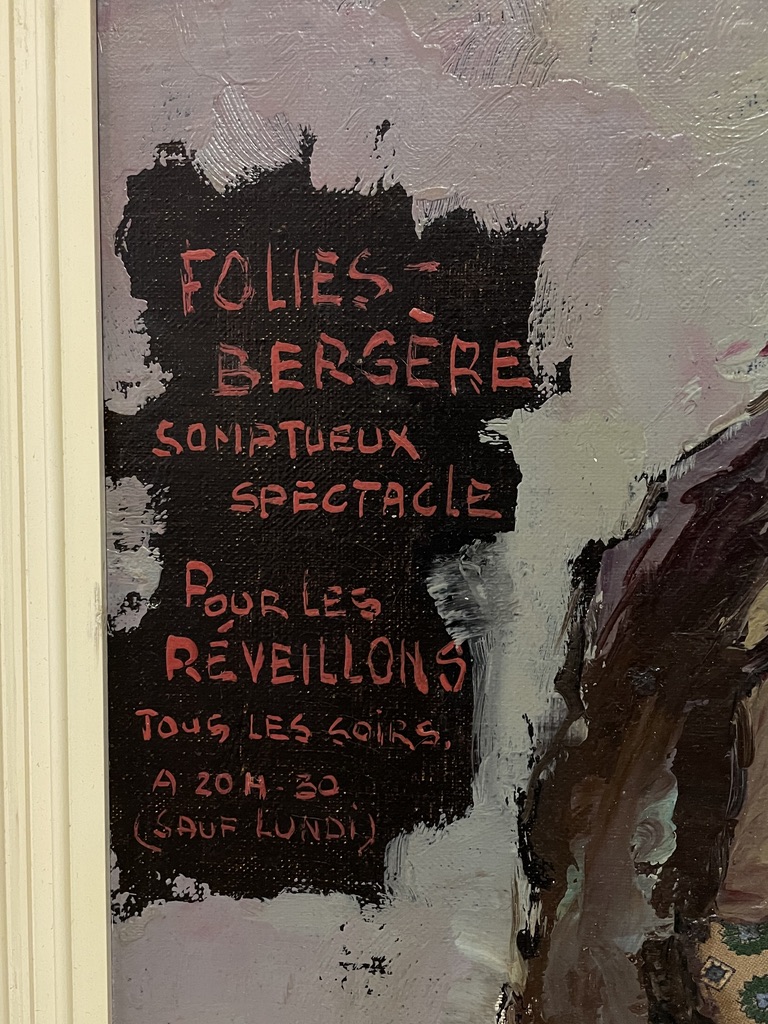 FOLIES-
BERGÈRE
SOMPTUEUX
SPECTACLE
POUR LES
RÉVEILLONS
TOUS LES SOIRS,
A 20 H - 30
(SAUF LUNDI)